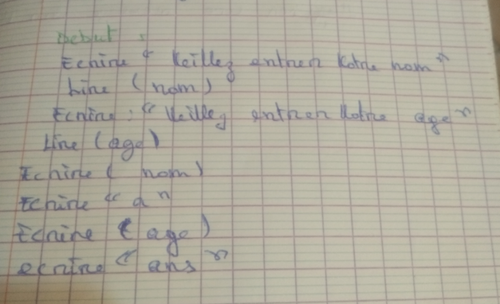 Debut :
Ecrire " Veillez entrer Votre nom "
Lire ( nom )
Ecrire : " Veillez entrer Votre age "
Lire ( age )
Ecrire ( nom )
Ecrire " a "
Ecrire ( age )
ecrire " ans "